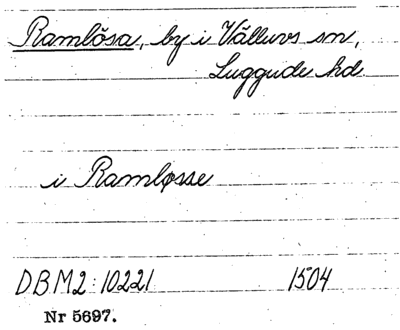 Ramlösa, by i Välluvs sn,
Luggude hd.
i Ramløsse
DBM2:10221 1504
Nr 5697.